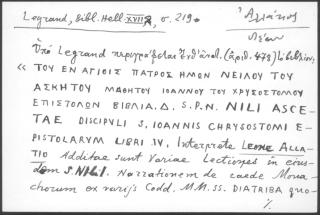 Legrand, Bibl. Hell. XVII, σ. 219.
Ἀλλάτιος
Λέων
Ὑπὸ Legrand περιγράφεται ἐνθ᾽ ἀνωτ. (ἀριθ. 478)
« ΤΟΥ ΕΝ ΑΓΙΟΙΣ ΠΑΤΡΟΣ ΗΜΩΝ ΝΕΙΛΟΥ ΤΟΥ
ΑΣΚΗΤΟΥ ΜΑΘΗΤΟΥ ΙΩΑΝΝΟΥ ΤΟΥ ΧΡΥΣΟΣΤΟΜΟΥ
ΕΠΙΣΤΟΛΩΝ ΒΙΒΛΙΑ. Δ. S. P. N. NILI ASCE-
TAE DISCIPULI S. IOANNIS CHRYSOSTOMI E-
PISTOLARUM LIBRI IV. Interprete LEONE ALLA-
TIO Additae sunt Variae Lectiones in eius-
dem S. NILI. Narrationem de caede Mona-
chorum ex varijs Codd. MM. SS. DIATRIBA quo-
%